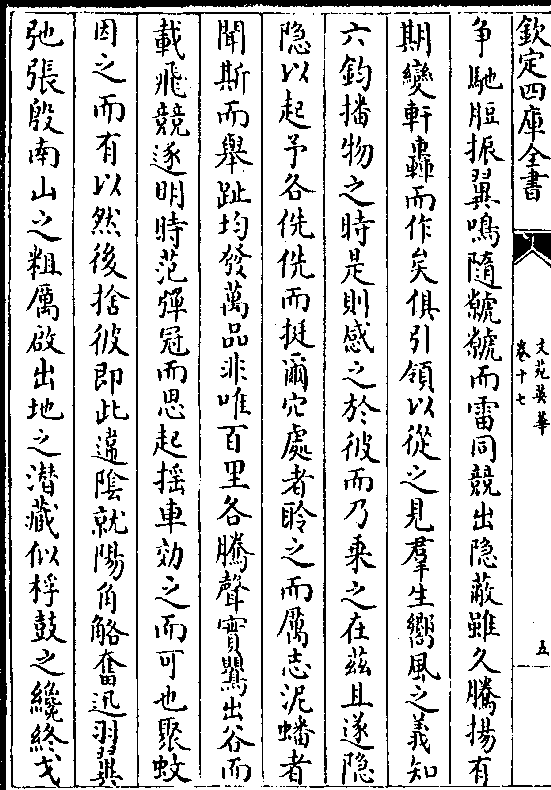 欽定四庫全書
文苑英華
卷十七
五
争馳脰振翼鳴隨虩虩而雷同競出隐蔽雖久騰揚有
期變軒轟而作矣俱引領以從之見羣生嚮風之義知
六鈞播物之時是則感之於彼而乃乗之在兹且遂隐
隐以起予各侁侁而挺爾穴處者聆之而厲志泥蟠者
聞斯而舉趾均發萬品非唯百里各騰聲實鸎出谷而
載飛競逐明時范彈冠而思起揺車効之而可也聚蚊
因之而有以然後捨彼即此違陰就陽角觡奮迅羽翼
弛張殷南山之粗厲啟出地之潜藏似桴鼓之纔終戈